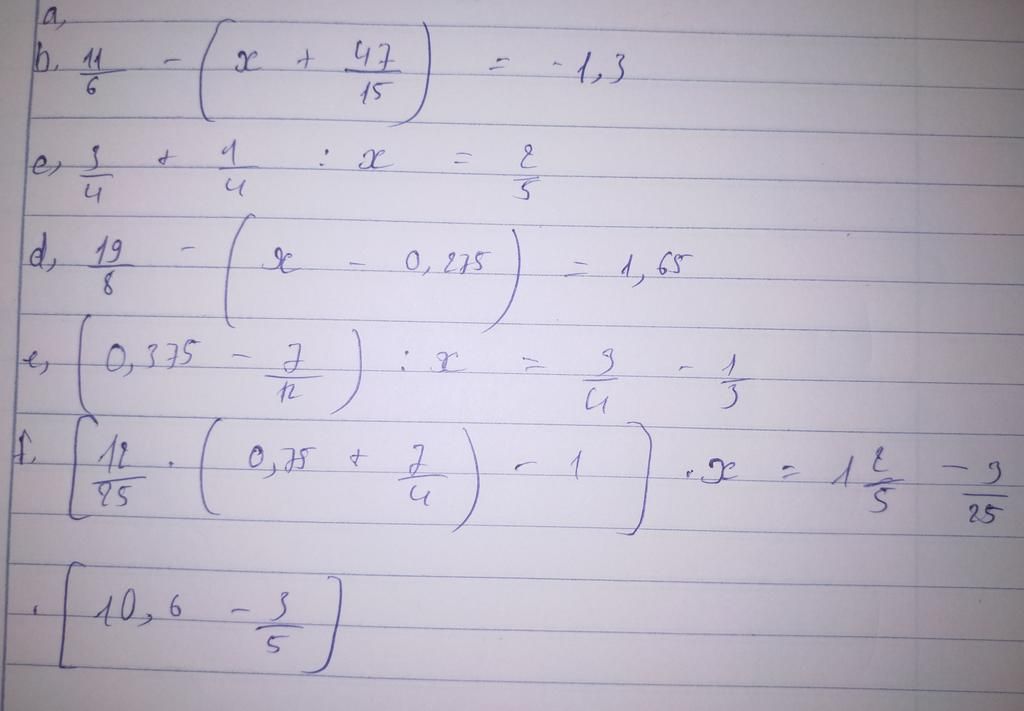 a,
b, 11/6 - (x + 47/15) = -1,3
c, 3/4 + 1/4 : x = 2/5
d, 19/8 - (x - 0,275) = 1,65
e, (0,375 - 7/12) : x = 3/4 - 1/3
f, [12/25 . (0,75 + 7/4) - 1] . x = 1 2/5 - 3/25
. [10,6 - 3/5]